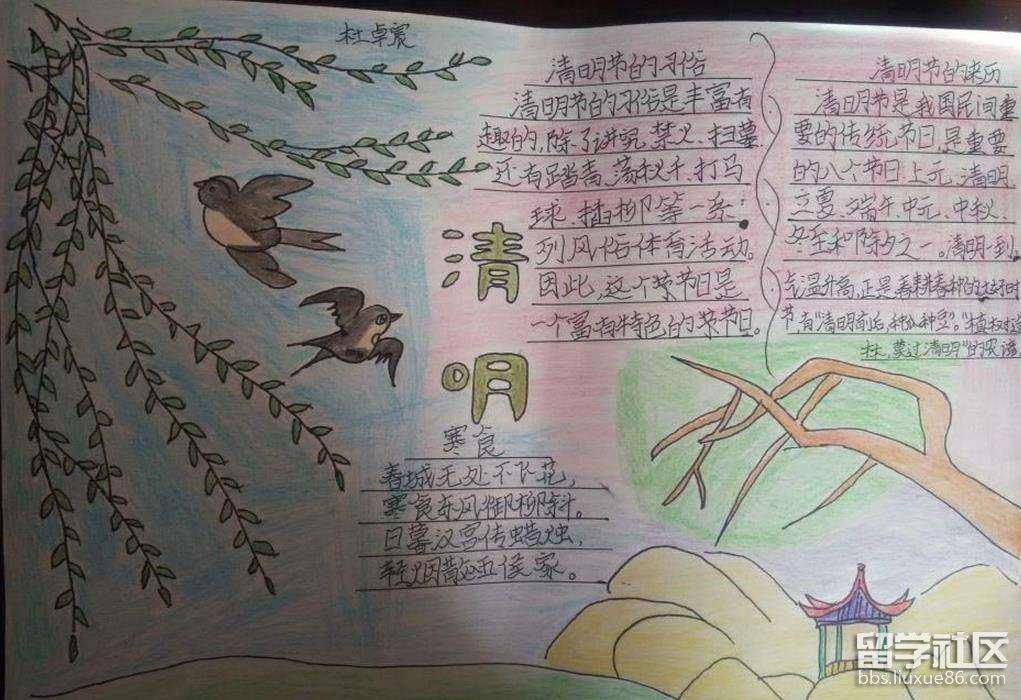 杜卓宸
清明节的习俗
清明节的习俗是丰富有
趣的,除了讲究禁火、扫墓,
还有踏青、荡秋千、打马
球、插柳等一条
列风俗体育活动。
因此,这个节日是
一个富有特色的节日。
清明节的来历
清明节是我国民间重
要的传统节日,是重要
的八个节日:上元、清明、
立夏、端午、中元、中秋、
冬至和除夕之一。清明一到,
气温升高,正是春耕春种的大好时
节,有“清明前后,种瓜种豆”。“植树造
林,莫过清明”的农谚
清
明
寒食
春城无处不飞花,
寒食东风御柳斜。
日暮汉宫传蜡烛,
轻烟散五侯家。
留学社区
bbs.liuxue86.com